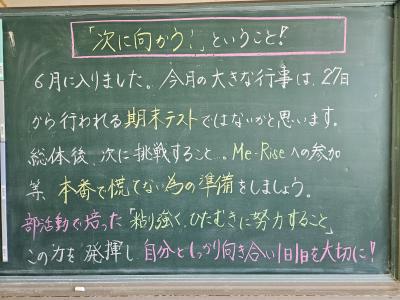 「次に向かう!」ということ!
6月に入りました。今月の大きな行事は、27日
から行われる期末テストではないかと思います。
総体後、次に挑戦すること…。Me-Riseへの参加
等、本番で慌てない為の準備をしましょう。
部活動で培った「粘り強く、ひたむきに努力すること」
この力を発揮し自分としっかり向き合い1日1日を大切に!